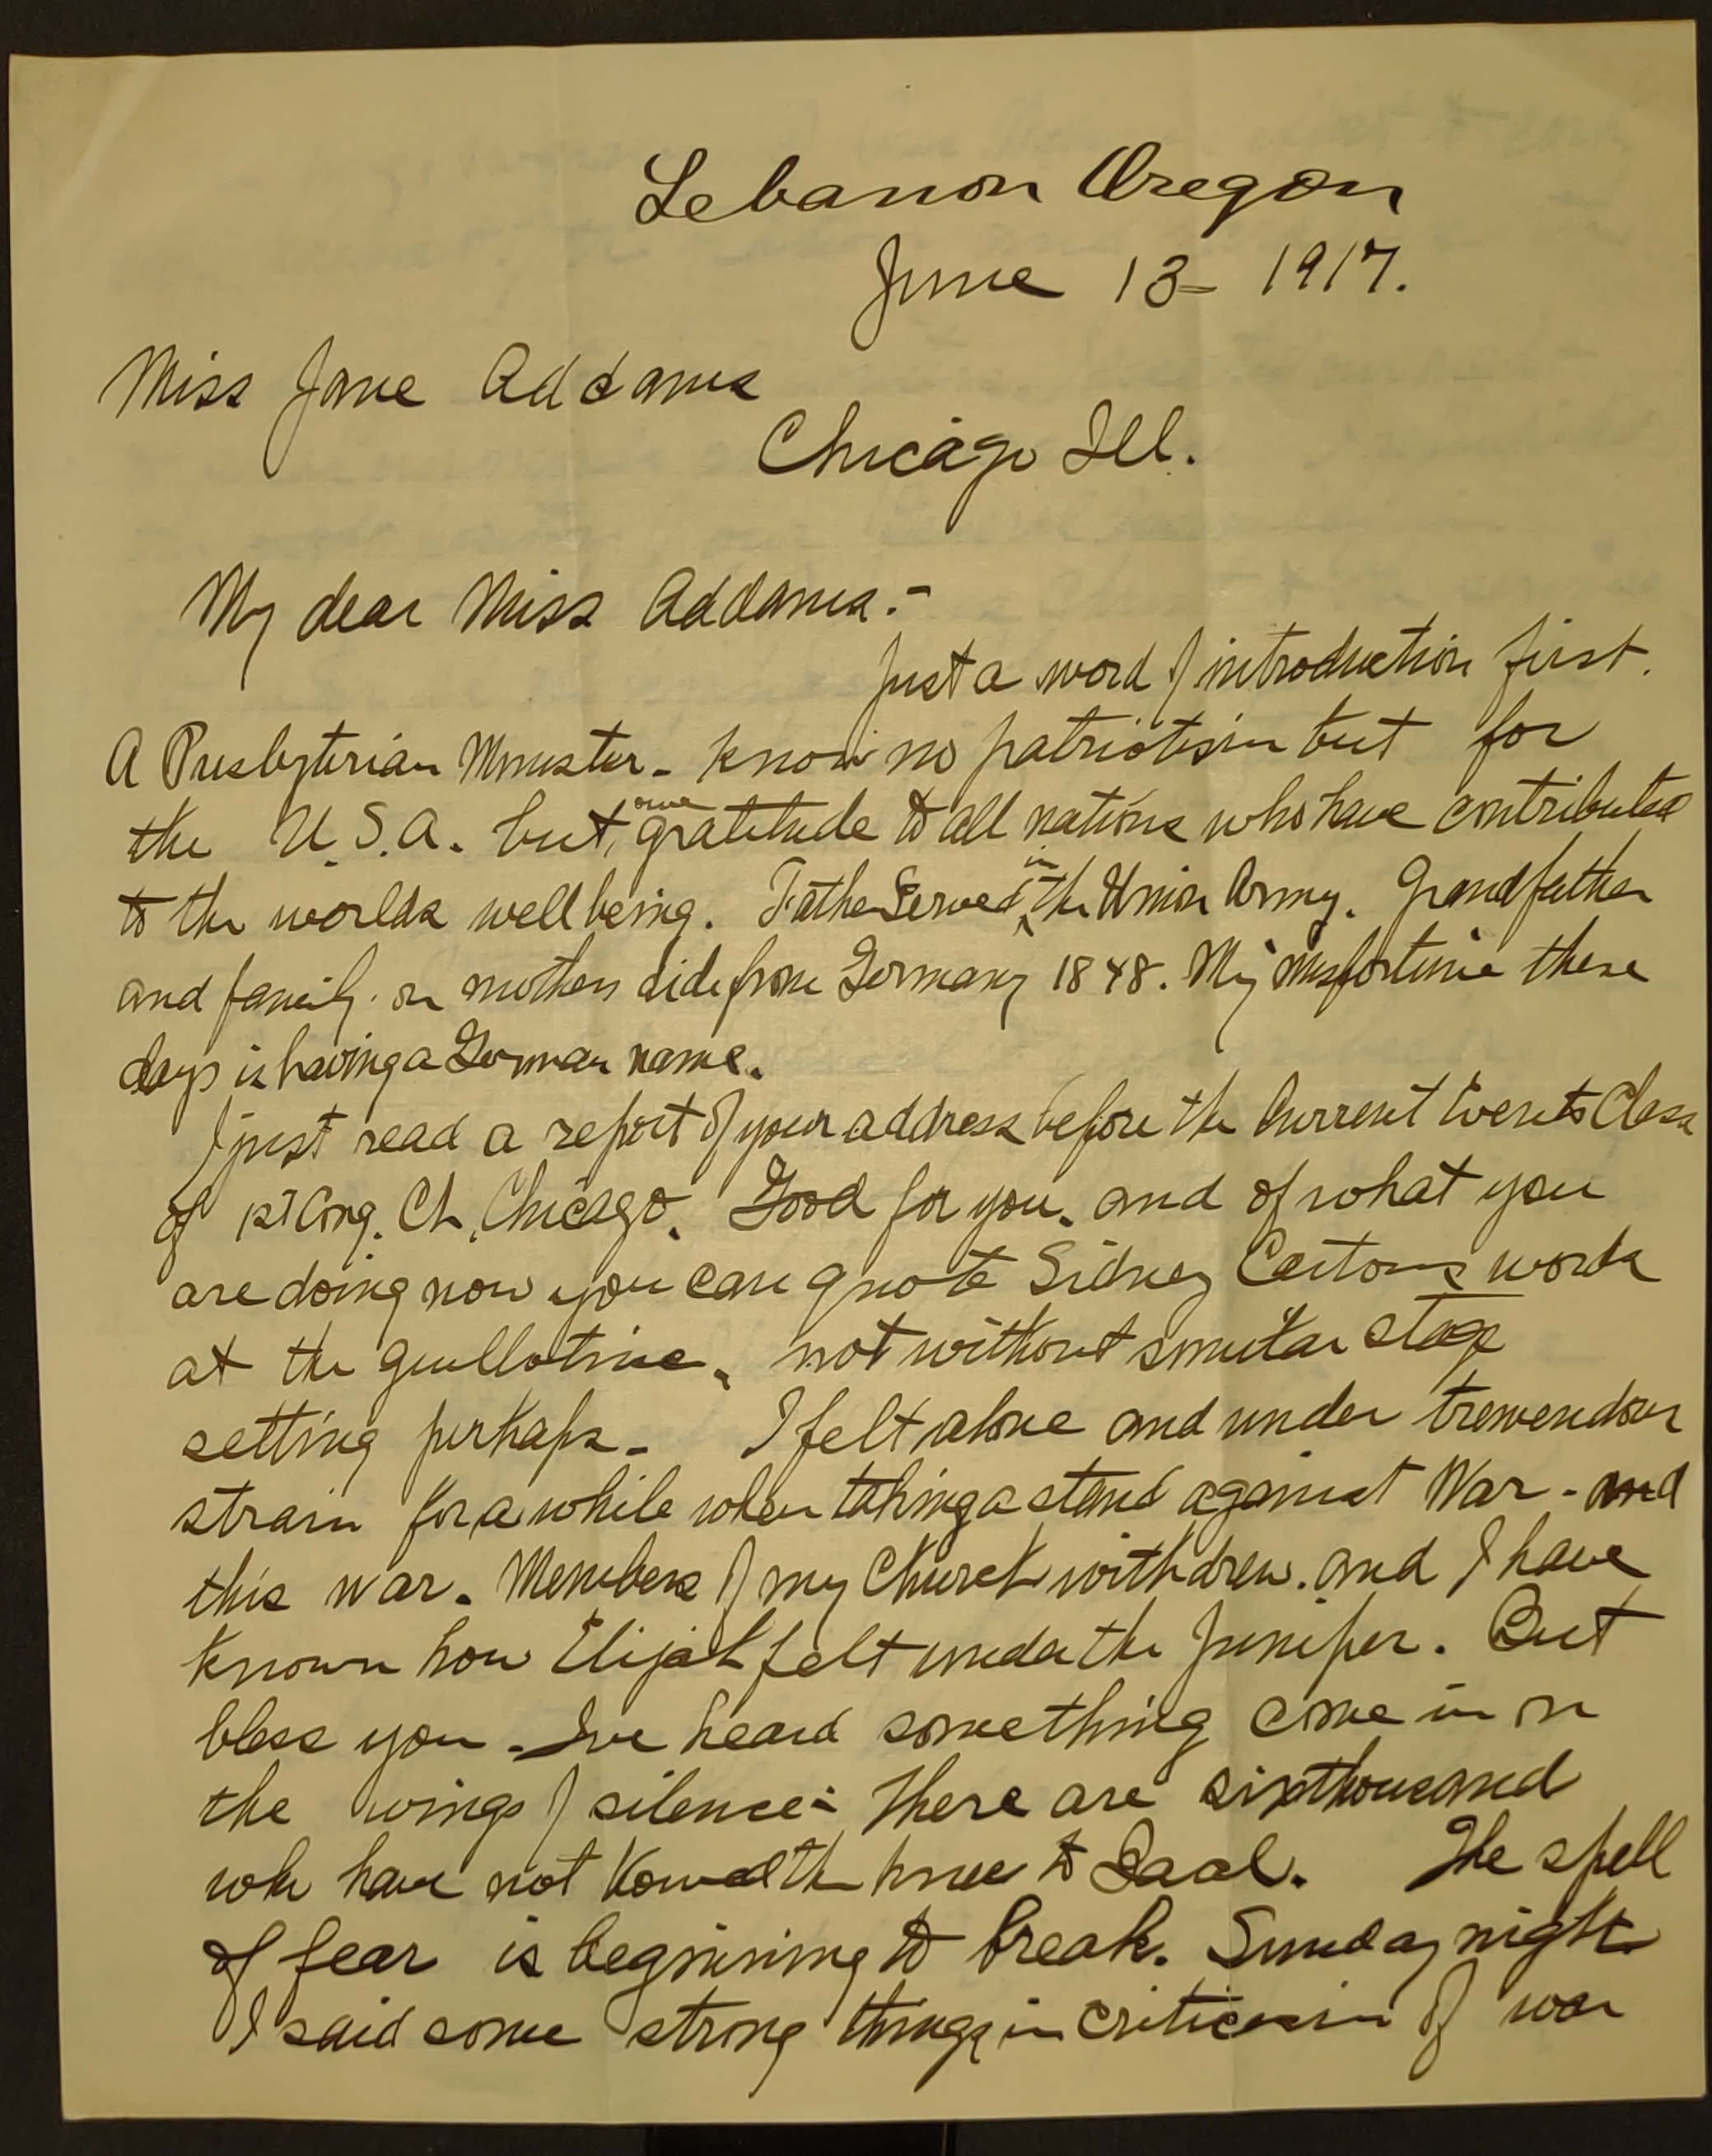 Lebanon Oregon
June 13 - 1917.
Miss Jane Addams
Chicago Ill.
My dear Miss Addams:-
Just a word of introduction first.
A Presbyterian Minister - know no patriotism but for
the U.S.A. but owe gratitude to all nations who have contributed
to the worlds well being. Father Served in the Union Army. Grandfather
and family on mothers side from Germany 1848. My misfortune these
days is having a German name.
I just read a report of your address before the Current Events Class
of 1st Cong. Ch. Chicago. Good for you. and of what you
are doing now you can quote Sidney Cartons words
at the guillotine, not without similar stage
setting perhaps - I felt alone and under tremendous
strain for a while when taking a stand against War - and
this war. Members of my Church withdrew. and I have
known how Elijah felt under the Juniper. But
bless you - Ive heard something come in on
the wings of silence: There are six thousand
who have not bowed the knee to Baal. The spell
of fear is beginning to break. Sunday night
I said some strong things in criticism of war